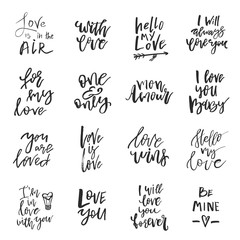 Love
is in the
AIR
with
love
hello
my
Love
I will
always
love you
for
my
love
one
&
only
mon
Amour
I love
you
Baby
you
are
loved
love
is
love
love
wins
Hello
my
love
I'm
in
love
with you
Love
you
I will
love
you
forever
BE
MINE